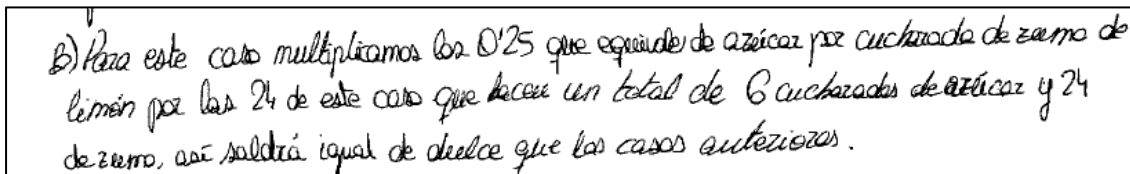 B) Para este caso multiplicamos los 0'25 que equivale de azúcar por cucharada de zumo de
limón por las 24 de este caso que hacen un total de 6 cucharadas de azúcar y 24
de zumo, así saldrá igual de dulce que los casos anteriores.